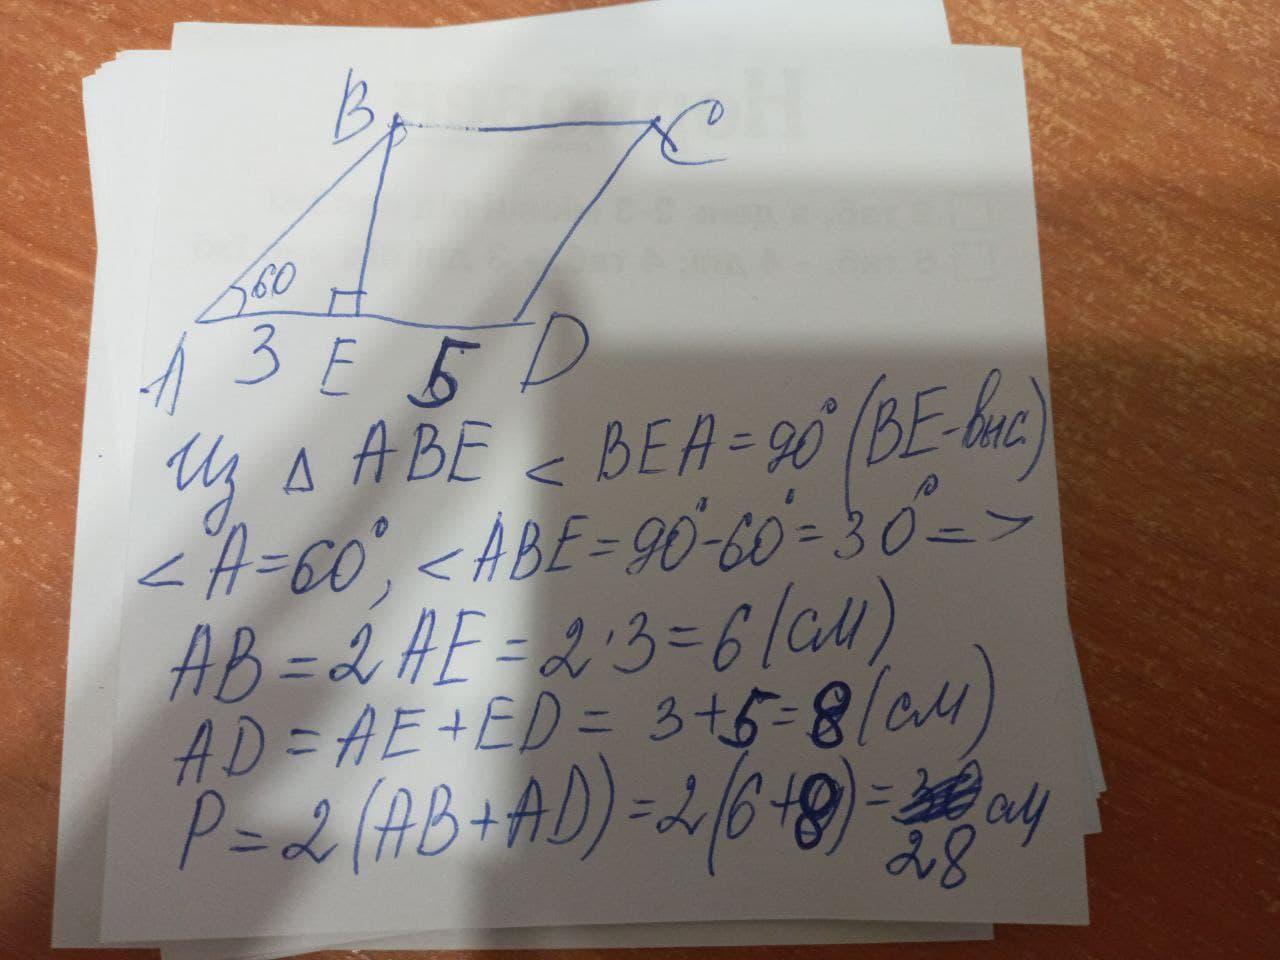 B
C
60
A 3 E 5 D
Из Δ ABE < BEA = 90° (BE - выс)
< A = 60°, < ABE = 90° - 60° = 30° = >
AB = 2 AE = 2 · 3 = 6 (см)
AD = AE + ED = 3 + 5 = 8 (см)
P = 2 (AB + AD) = 2 (6 + 8) = 28 см